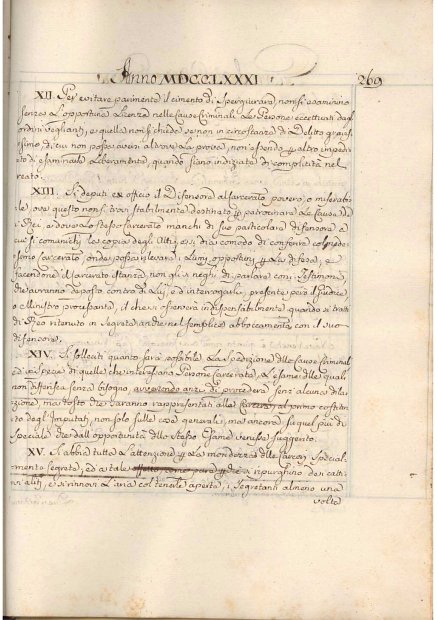 Anno MDCCLXXXI. 269
XII. Per evitare parimente il cimento di Spergiurare, non si esaminino
senza l'opportuna Licenza nelle Cause Criminali le Persone eccettuati dagl'
ordini veglianti, e quella non si chieda se non in circostanza di Delitto gravis-
simo, di cui non possa aversi altrove la prova, non essendo p altro impedi-
to di esaminarle Liberamente, quando siano indiziate di complicità nel
reato.
XIII. Si deputi ex officio il Difensore al Carcerato povero, o miserabi-
le, ove questo non si trovi stabilmente destinato p patrocinare le Cause di
i Rei, ai dove lo stesso Carcerato manchi di suo particolare difensore a
cui si comunichi la copia degli Atti, e si dia comodo di conferire col mede-
simo Carcerato, onde possa rilevare i Lumi opportuni p la difesa; e
facendone il Carcerato istanza, non gli si neghi di parlare con i Testimoni
che avranno deposto contro di Lui, ed interrogarli, presente però il Giudice,
o Ministro processante, il che si osserverà indispensabilmente quando si tratti
di Reo ritenuto in Segreta anche nel semplice abboccamento con il suo
difensore.
XIV. Si solleciti quanto sarà possibile la Spedizione delle Cause Criminali
ed in specie di quelle che interessano Persone Carcerate, al esame delle quali
non dispensa senza bisogno, avvertendo anzi di procederà senz' alcuna dila-
zione, ma tosto che saranno rappresentati alle Carceri al primo costitu-
to degli Imputati, non solo sulle cose generali, ma ancora su quel più di
Speciale che dall'opportunità dello Stesso Esame venisse suggerito.
XV. Si abbia tutta l'attenzione p la mondezza delle Carceri spezial-
mente segrete, ed a tale effetto, come pure che si ripurghino dai cattivi
aliti, e si rinnovi l'aria col tenerle aperte, i Segretanti almeno una
volta